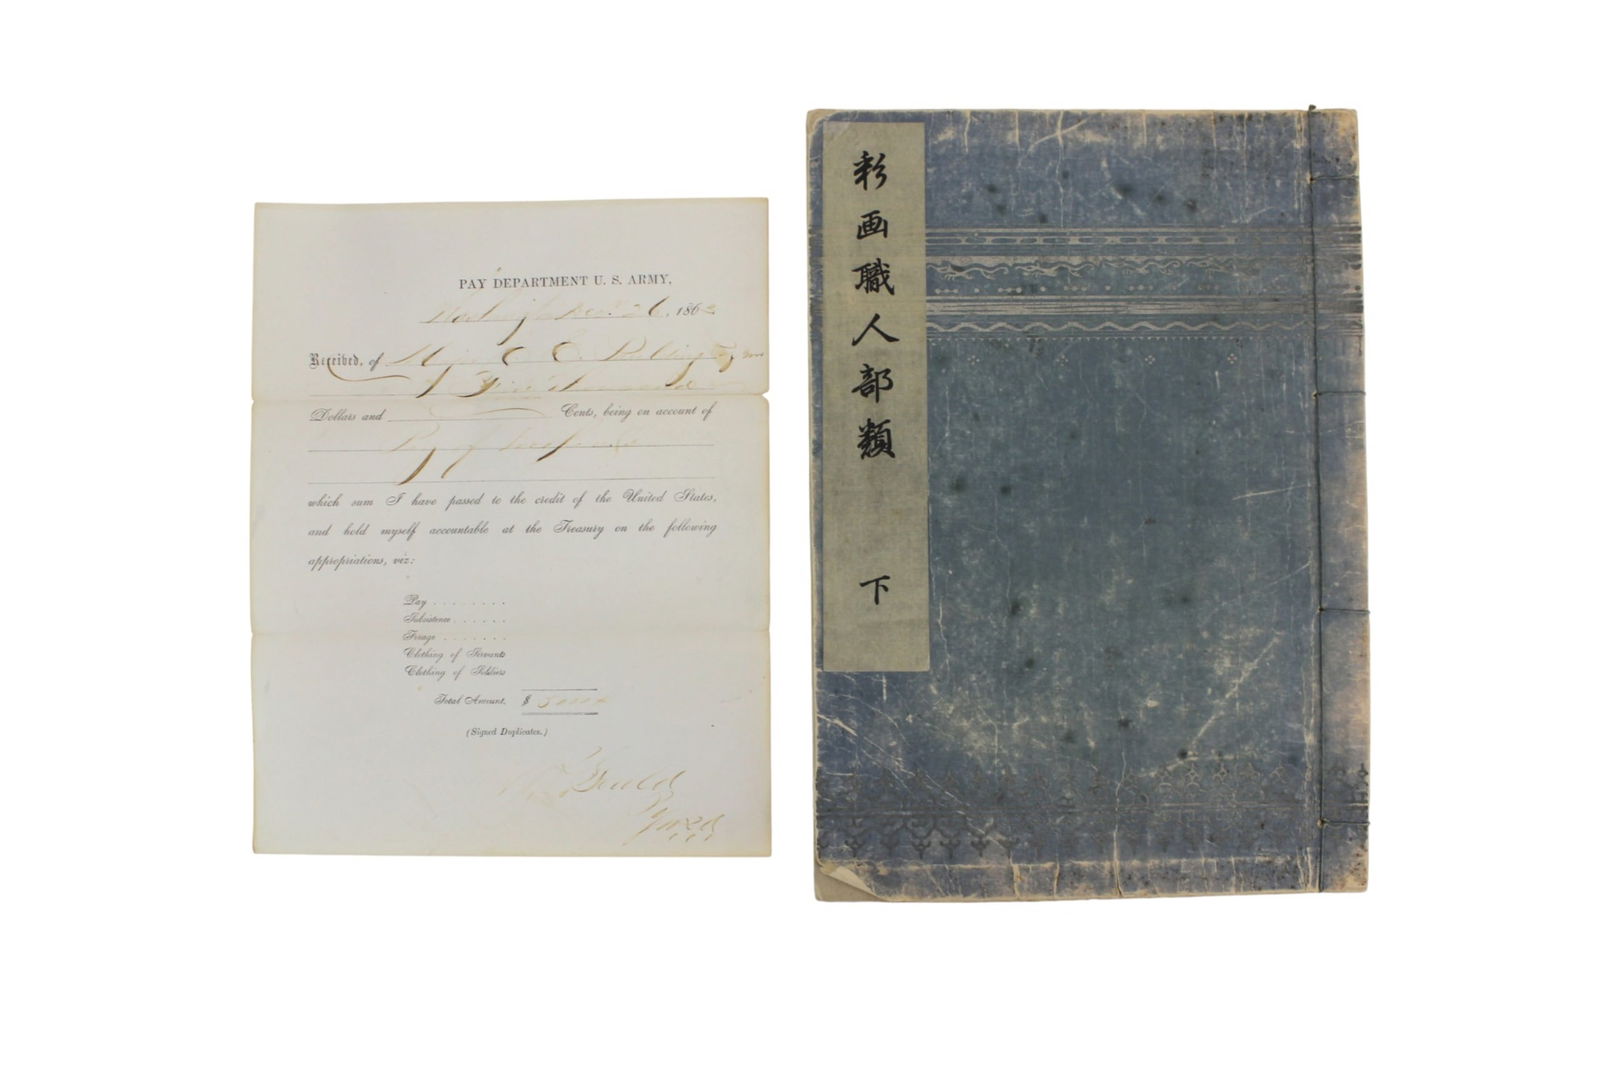 PAY DEPARTMENT U. S. ARMY,
Dec. 26, 1862
Received, of Major
Dollars and Cents, being on account of
Pay of
which sum I have passed to the credit of the United States,
and hold myself accountable at the Treasury on the following
appropriations, viz:
Pay . . . . . . . .
Subsistence . . . . . .
Forage . . . . . . .
Clothing of Servants
Clothing of Soldiers
Total Amount, $
(Signed Duplicates.)
彩画職人部類
下